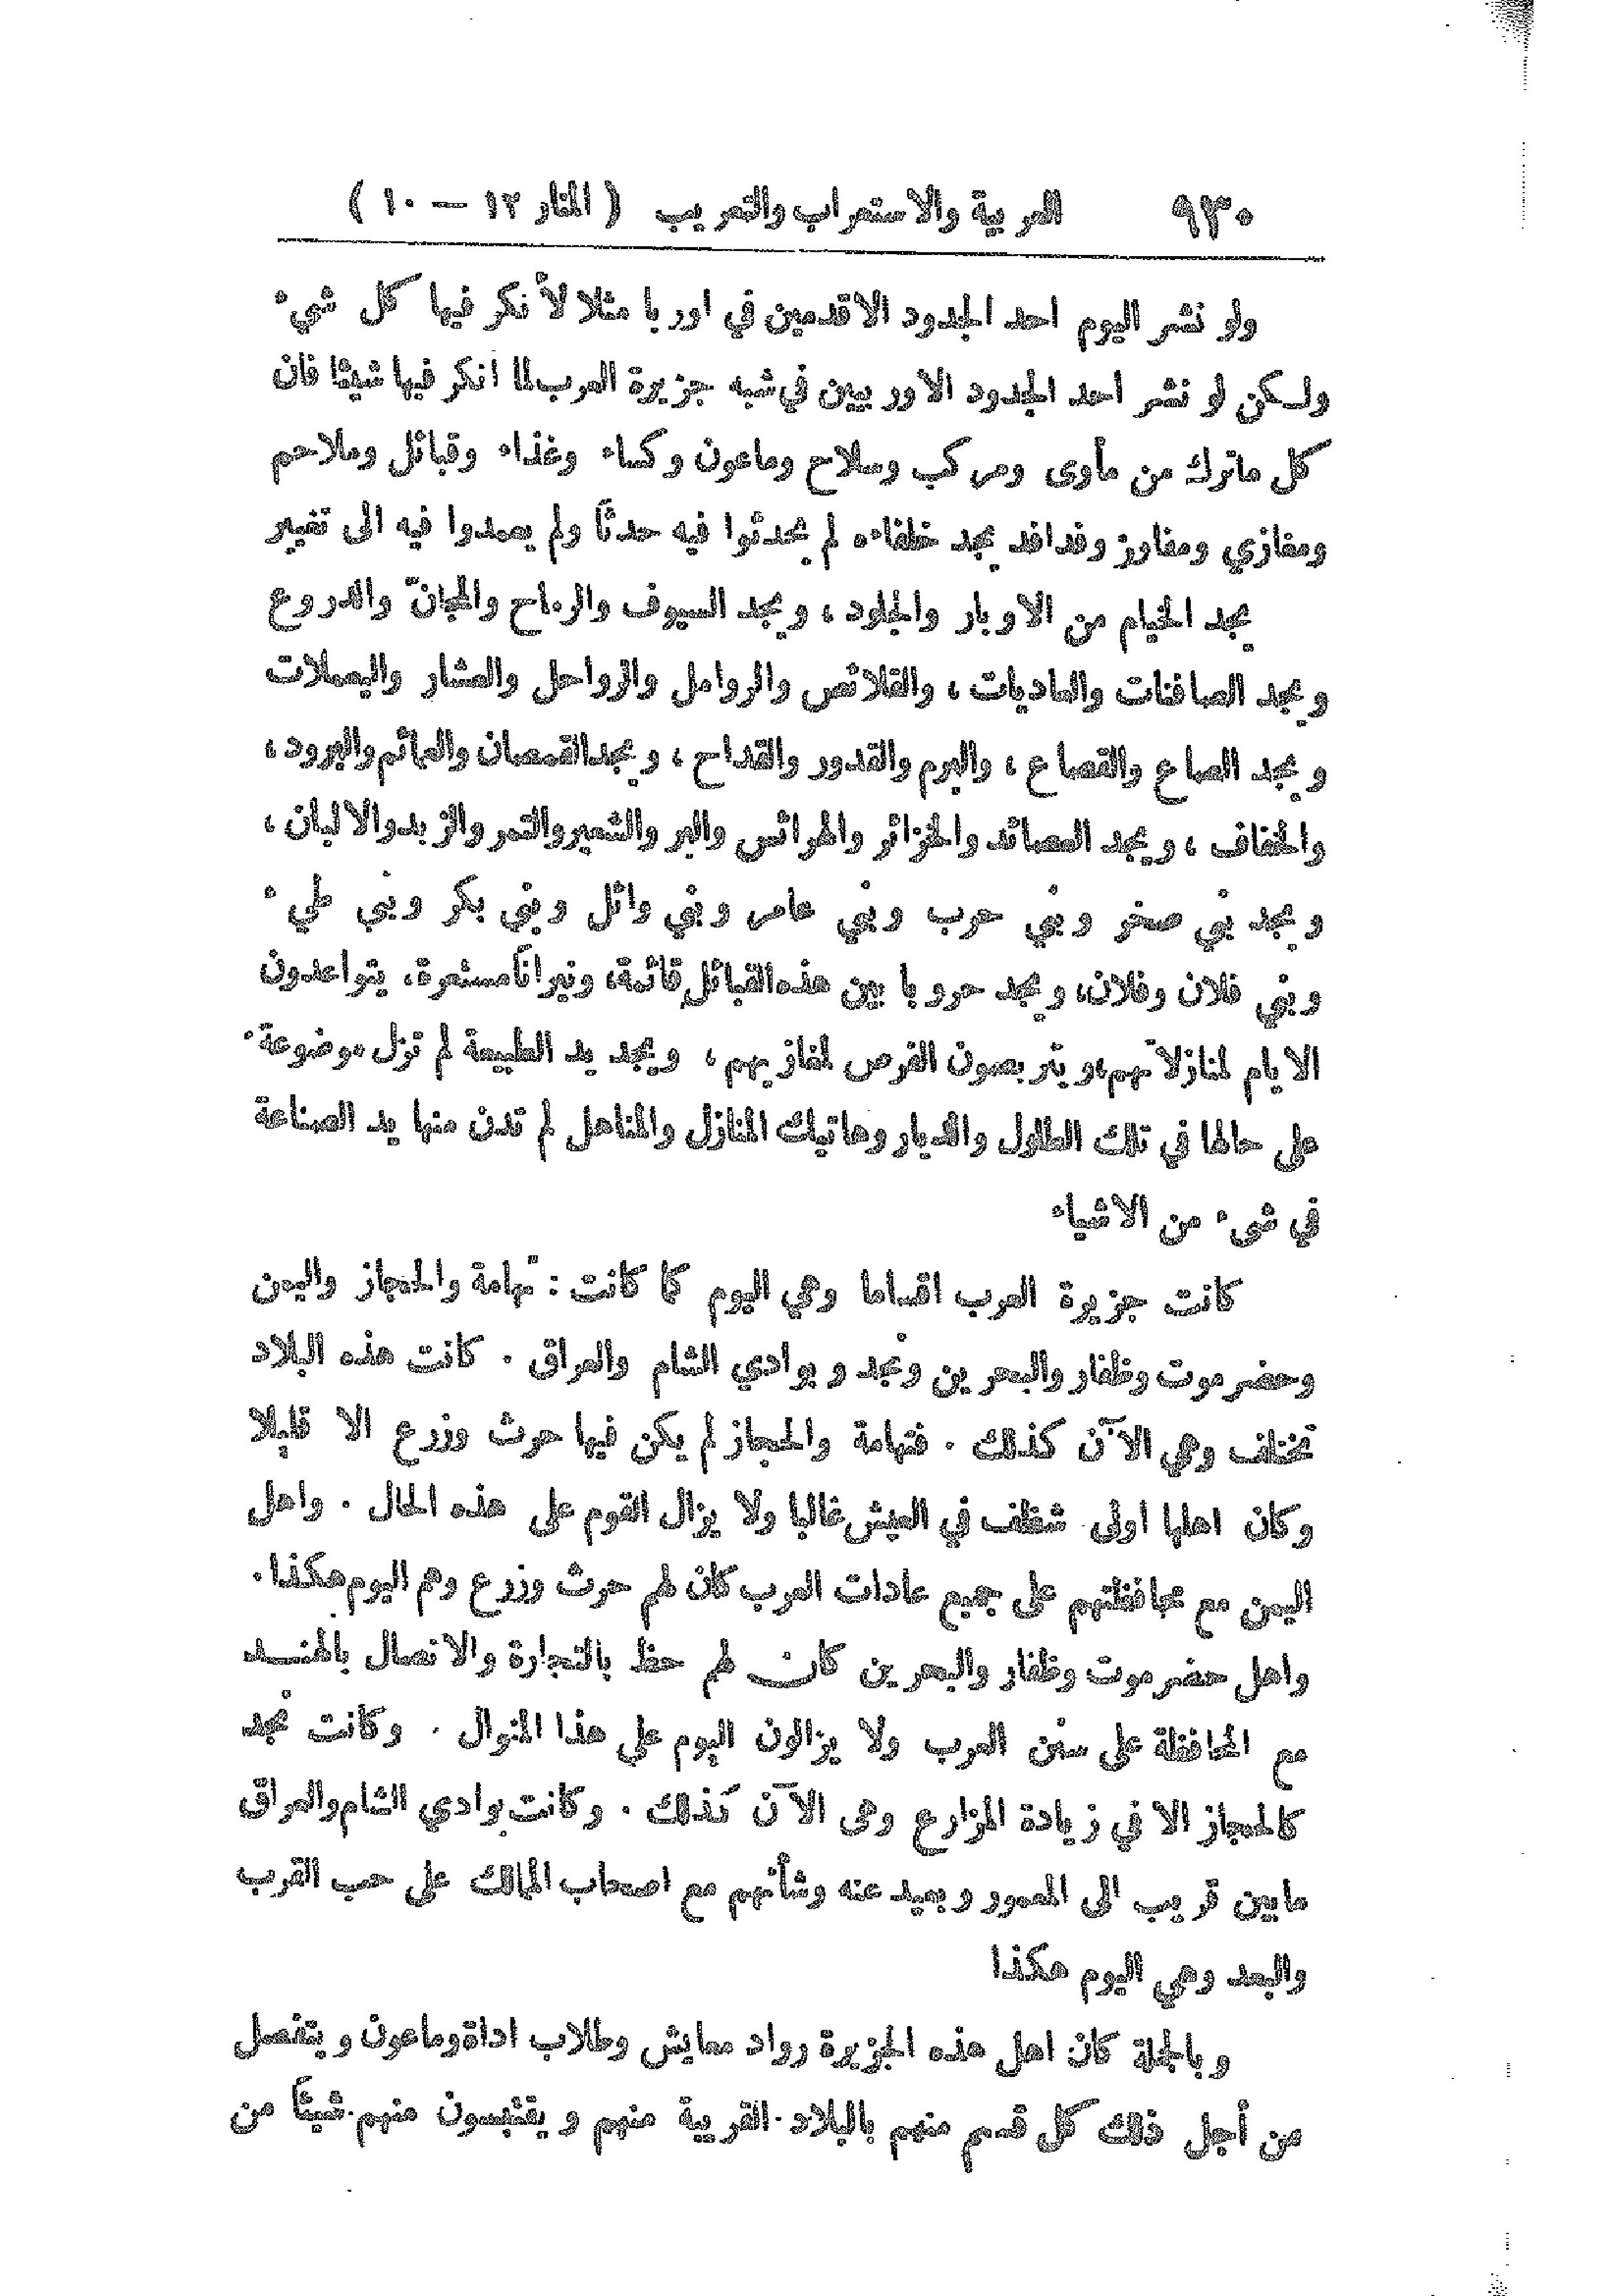 ٩٣٠ العربية والاستعراب والتعريب ( المنار ١٢ — ١٠ )
ولو نشر اليوم احد الجدود الاقدمين في اوربا مثلا لأ نكر فيها كل شيء
ولكن لو نشر احد الجدود الاوربيين في شبه جزيرة العرب لما انكر فيها شيئا فان
كل ماترك من مأوى ومركب وسلاح وماعون وكساء وغذاء وقبائل وملاحم
ومغازي ومفاوز وفدافد يجد خلفاءه لم يحدثوا فيه حدثاً ولم يعمدوا فيه الى تغيير
يجد الخيام من الاوبار والجلود ، ويجد السيوف والرماح والمجانّ والدروع
ويجد الصافنات والعاديات ، والقلائص والروامل والرواحل والعشار واليعملات
ويجد الصاع والقصاع ، والبرم والقدور والقداح ، ويجد القمصان والعمائم والبرود ،
والخفاف ، ويجد العصائد والخزائر والهرائس والبر والشعير والتمر والزبد والالبان ،
ويجد بني صخر وبني حرب وبني عامر وبني وائل وبني بكر وبني طيء
وبني فلان وفلان، ويجد حروبا بين هذه القبائل قائمة، ونيراناً مستعرة، يتواعدون
الايام لمنازلاتهم، ويتربصون الفرص لمغازيهم ، ويجد يد الطبيعة لم تزل موضوعة
على حالها في تلك الطلول والديار وهاتيك المنازل والمناهل لم تدن منها يد الصناعة
في شىء من الاشياء
كانت جزيرة العرب اقساما وهي اليوم كما كانت : تهامة والحجاز واليمن
وحضرموت وظفار والبحرين ونجد وبوادي الشام والعراق . كانت هذه البلاد
تختلف وهي الآن كذلك . فتهامة والحجاز لم يكن فيها حرث وزرع الا قليلا
وكان اهلها اولى شظف في العيش غالبا ولا يزال القوم على هذه الحال . واهل
اليمن مع محافظتهم على جميع عادات العرب كان لهم حرث وزرع وهم اليوم هكذا.
واهل حضرموت وظفار والبحرين كان لهم حظ بالتجارة والاتصال بالهند
مع المحافظة على سنن العرب ولا يزالون اليوم على هذا المنوال . وكانت نجد
كالحجاز الا في زيادة المزارع وهى الآن كذلك . وكانت بوادي الشام والعراق
مابين قريب الى المعمور وبعيد عنه وشأنهم مع اصحاب الممالك على حسب القرب
والبعد وهي اليوم هكذا
وبالجملة كان اهل هذه الجزيرة رواد معايش وطلاب اداة وماعون ويتفصل
من أجل ذلك كل قسم منهم بالبلاد القريبة منهم ويقتبسون منهم شيئاً من